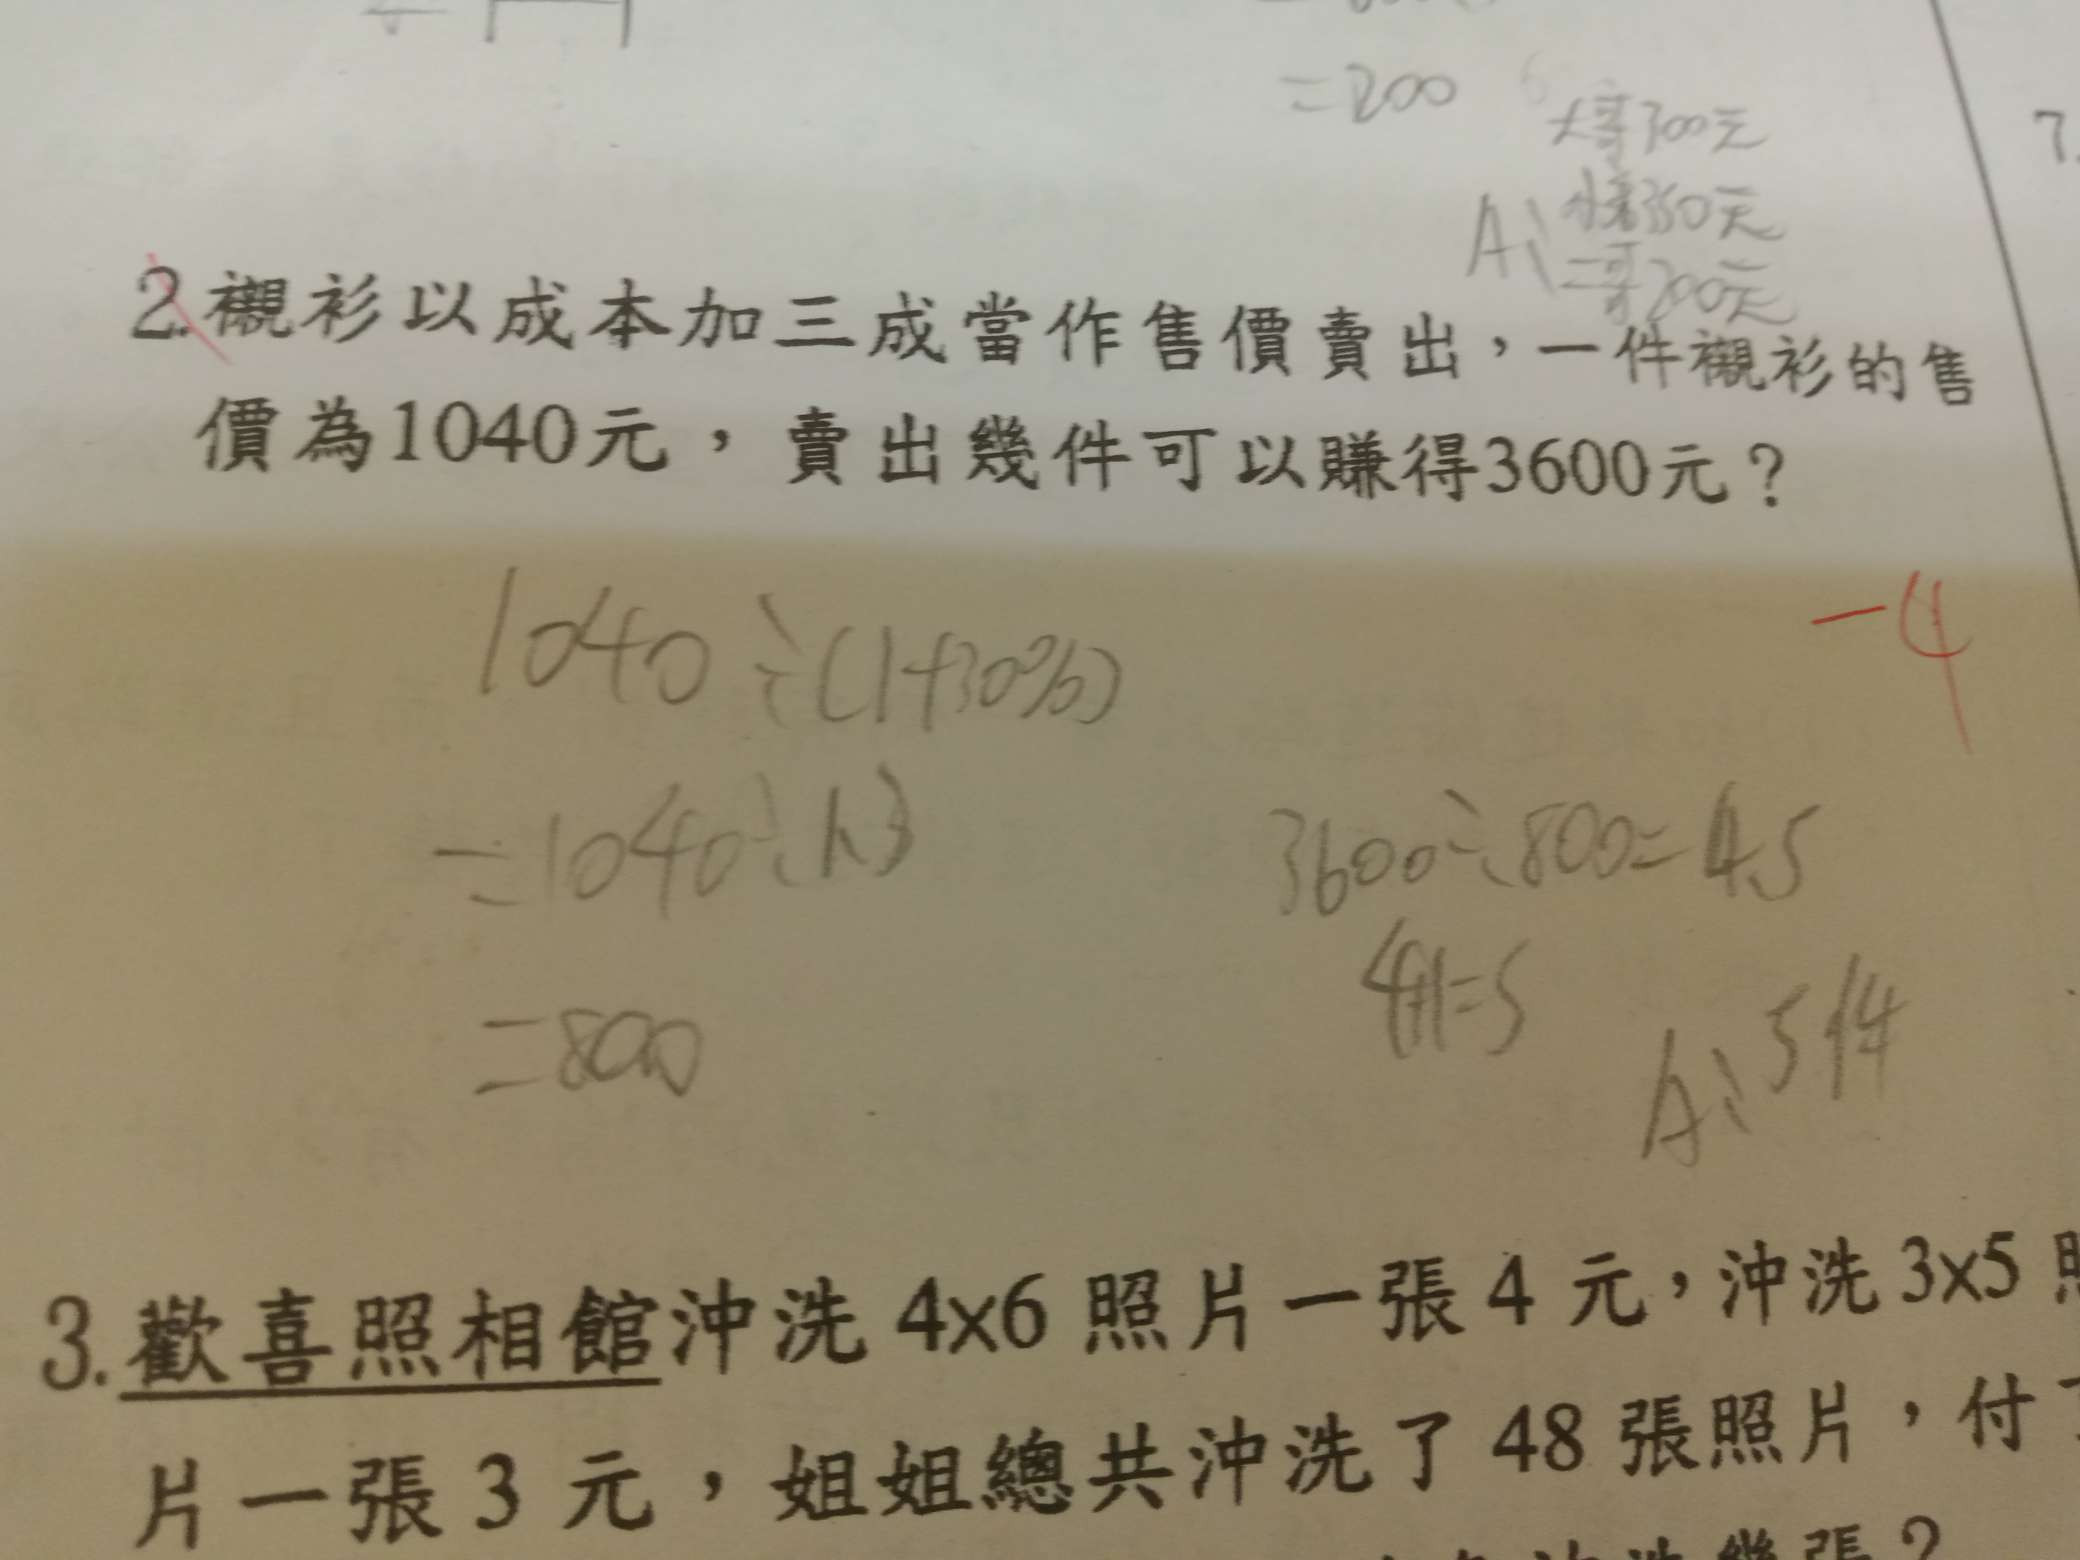 =200
大哥700元
A: 350元
二哥200元
7.
2.襯衫以成本加三成當作售價賣出，一件襯衫的售
價為1040元，賣出幾件可以賺得3600元？
-4
1040÷(1+30%)
=1040÷1.3
3600÷800=4.5
4+1=5
=800
A: 5件
3.歡喜照相館沖洗 4x6 照片一張 4 元，沖洗 3x5 照
片一張 3 元，姐姐總共沖洗了 48 張照片，付了
沖洗幾張？